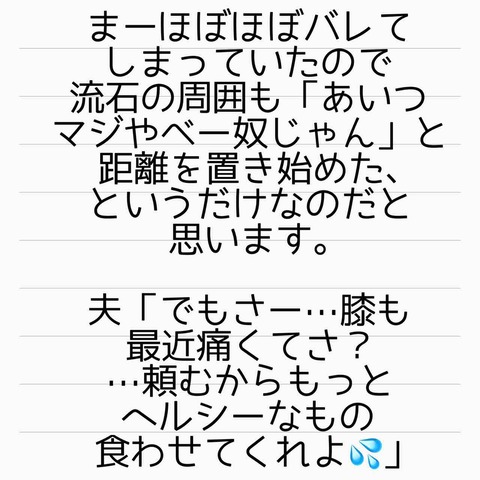 まーほぼほぼバレて
しまっていたので
流石の周囲も「あいつ
マジやべー奴じゃん」と
距離を置き始めた、
というだけなのだと
思います。
夫「でもさー…膝も
最近痛くてさ？
…頼むからもっと
ヘルシーなもの
食わせてくれよ💦」